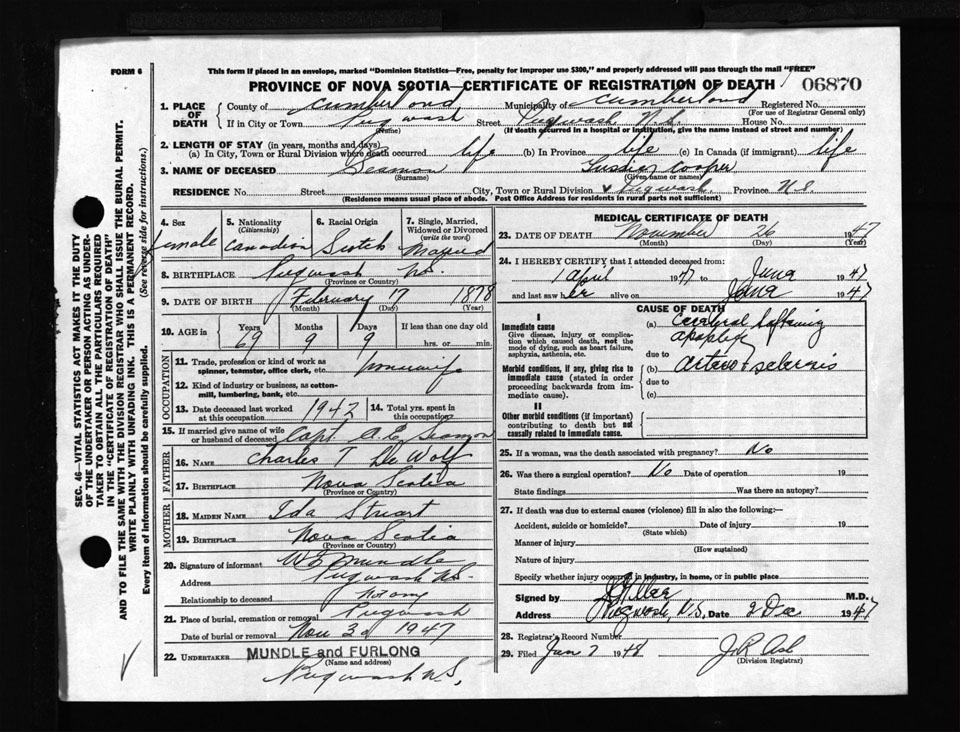 FORM 6
This form if placed in an envelope, marked "Dominion Statistics—Free, penalty for improper use $300," and properly addressed will pass through the mail "FREE"
PROVINCE OF NOVA SCOTIA—CERTIFICATE OF REGISTRATION OF DEATH 06870
1. PLACE OF DEATH County of Cumberland Municipality of Cumberland Registered No.
(For use of Registrar General only)
If in City or Town Pugwash Street Pugwash N.S. House No.
(Name) (If death occurred in a hospital or institution, give the name instead of street and number)
2. LENGTH OF STAY (in years, months and days)
(a) In City, Town or Rural Division where death occurred life (b) In Province life (c) In Canada (if immigrant) life
3. NAME OF DECEASED Seamon Cooper
(Surname) (Given name or names)
RESIDENCE No. Street City, Town or Rural Division Pugwash Province N.S.
(Residence means usual place of abode. Post Office Address for residents in rural parts not sufficient)
4. Sex female
5. Nationality (Citizenship) Canadian
6. Racial Origin Scotch
7. Single, Married, Widowed or Divorced (write the word) Married
8. BIRTHPLACE Pugwash N.S.
(Province or Country)
9. DATE OF BIRTH February 7 1878
(Month) (Day) (Year)
10. AGE in Years 69 Months 9 Days 9 If less than one day old hrs. or min.
OCCUPATION
11. Trade, profession or kind of work as spinner, teamster, office clerk, etc. housewife
12. Kind of industry or business, as cotton-mill, lumbering, bank, etc.
13. Date deceased last worked at this occupation 1942 14. Total yrs. spent in this occupation
15. If married give name of wife or husband of deceased Capt. A.E. Seamon
FATHER
16. NAME Charles T De Wolf
17. BIRTHPLACE Nova Scotia
(Province or Country)
MOTHER
18. MAIDEN NAME Ida Stuart
19. BIRTHPLACE Nova Scotia
(Province or Country)
20. Signature of informant Mundle
Address Pugwash N.S.
Relationship to deceased
21. Place of burial, cremation or removal Pugwash
Date of burial or removal Nov 30 1947
22. UNDERTAKER MUNDLE and FURLONG
(Name and address)
Pugwash N.S.
MEDICAL CERTIFICATE OF DEATH
23. DATE OF DEATH November 26 1947
(Month) (Day) (Year)
24. I HEREBY CERTIFY that I attended deceased from:
1 April 1947 to June 1947
and last saw her alive on June 1947
CAUSE OF DEATH
I
Immediate cause
Give disease, injury or complication which caused death, not the mode of dying, such as heart failure, asphyxia, asthenia, etc.
(a) Cerebral softening
apoplexy
due to
Morbid conditions, if any, giving rise to immediate cause (stated in order proceeding backwards from immediate cause).
(b)
due to
(c)
II
Other morbid conditions (if important) contributing to death but not causally related to immediate cause.
25. If a woman, was the death associated with pregnancy? No
26. Was there a surgical operation? No Date of operation 19
State findings Was there an autopsy?
27. If death was due to external causes (violence) fill in also the following:—
Accident, suicide or homicide? Date of injury 19
(State which)
Manner of injury
(How sustained)
Nature of injury
Specify whether injury occurred in industry, in home, or in public place
Signed by M.D.
Address Pugwash, N.S. Date 2 Dec 1947
28. Registrar's Record Number
29. Filed Jan 7 1948 J.R. Ash
(Division Registrar)
SEC. 46—VITAL STATISTICS ACT MAKES IT THE DUTY
OF THE UNDERTAKER OR PERSON ACTING AS UNDER-
TAKER TO OBTAIN ALL THE PARTICULARS REQUIRED
IN THE "CERTIFICATE OF REGISTRATION OF DEATH"
AND TO FILE THE SAME WITH THE DIVISION REGISTRAR WHO SHALL ISSUE THE BURIAL PERMIT.
WRITE PLAINLY WITH UNFADING INK. THIS IS A PERMANENT RECORD.
Every item of information should be carefully supplied. (See reverse side for instructions.)